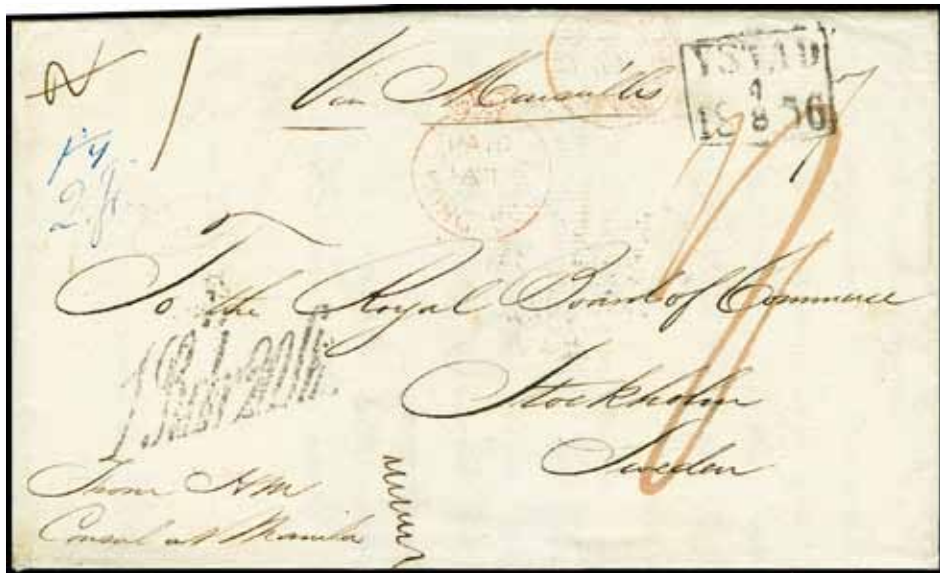 Via Marseilles
YSTAD
4
18 8 56
PAID
f 4
To the Royal Board of Commerce
Stockholm
Sweden
From HM
Consul at Manila